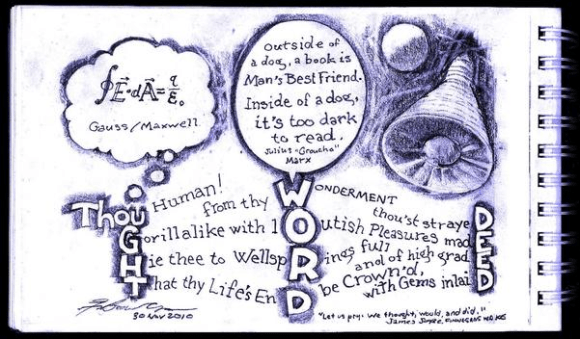 ∮E⃗·dA⃗=q/ε₀
Gauss/Maxwell
Outside of
a dog, a book is
Man's Best Friend.
Inside of a dog,
it's too dark
to read.
Julius "Groucho"
Marx
ThoU Human! from thy WONDERMENT thou'st strayeD
Gorillalike with lOutish Pleasures madE
Hie thee to WellspRings full and of high gradE
That thy Life's EnD be Crown'd, with Gems inlaiD
30 Nov 2010
"Let us pry. We thought, would, and did."
James Joyce, FINNEGANS WAKE